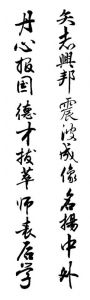 矢志兴邦震波成像名扬中外
丹心报国德才拔萃师表后学